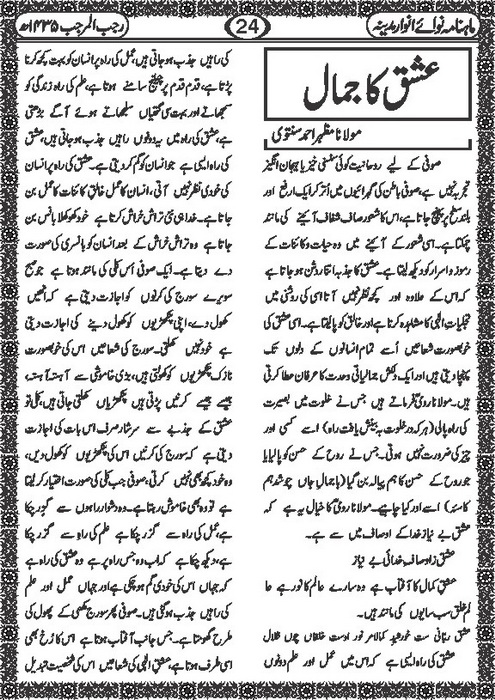 ماہنامہ نوائے انوار مدینہ
24
رجب المرجب ۱۴۳۵ھ
عشق کا جمال
مولانا مظہر احمد سنتوی
صوفی کے لیے روحانیت کوئی سنسنی خیز یا ہیجان انگیز
تجربہ نہیں ہے، صوفی باطن کی گہرائیوں میں اُتر کر ایک ارفع اور
بلند سطح پر پہنچ جاتا ہے، اس کا شعور صاف شفاف آئینے کی مانند
چمکتا ہے۔ اسی شعور کے آئینے میں وہ حیات و کائنات کے
رموز و اسرار کو دیکھ لیتا ہے۔ عشق کا جذبہ اتنا روشن ہو جاتا ہے
کہ اس کے علاوہ اور کچھ نظر نہیں آتا اسی کی روشنی میں
تجلیات الٰہی کا مشاہدہ کرتا ہے اور خالق کو پا لیتا ہے۔ اسی عشق کی
خوبصورت شعاعیں اُسے تمام انسانوں کے دلوں تک
پہنچا دیتی ہیں اور ایک دلکش جمالیاتی وحدت کا عرفان عطا کرتی
ہیں۔ مولانا رومی فرماتے ہیں جس نے خلوت میں بصیرت
کی راہ پالی (ہر کہ در خلوت بہ بینش یافت راہ) اسے کسی اور
چیز کی ضرورت نہیں ہوتی۔ جس نے روح کے حسن کو پا لیا یا
جو روح کے حسن کا ہم پیالہ بن گیا (با جمال جاں چو شد ہم
کاسۂ) اسے اور کیا چاہیے۔ مولانا رومی کا خیال یہ ہے کہ
عشق بے نیاز خدا کے اوصاف میں سے ہے۔
عشق ز اوصاف خدائی بے نیاز
عشق کمال کا آفتاب ہے وہ سارے عالم کا نور ہے عا
لم خلق سب سایوں کی مانند ہیں۔
عشق ربانی ست خورشید کمال امر نور اوست خلقاں چوں ظلال
عشق کی راہ ایسی ہے کہ اس میں عمل اور علم دونوں
کی راہیں جذب ہو جاتی ہیں، عمل کی راہ پر انسان کو بہت کچھ کرنا
پڑتا ہے، قدم قدم پر چیلنج سامنے ہوتا ہے، علم کی راہ زندگی کو
سمجھاتے اور بہت سی گتھیاں سلجھاتے ہوئے آگے بڑھتی
ہے، عشق کی راہ میں یہ دونوں راہیں جذب ہو جاتی ہیں، عشق
کی راہ ایسی ہے جو انسان کو گم کر دیتی ہے۔ عشق کی راہ پر انسان
کی خودی نظر نہیں آتی، انسان کا عمل خالق کائنات کا عمل بن
جاتا ہے۔ خدا ہی نئی تراش خراش کرتا ہے خود کھوکھلا بانس بن
جاتا ہے وہ تراش خراش کے بعد انسان کو بانسری کی صورت
دے دیتا ہے۔ نیک صوفی اُس کلی کی مانند ہوتا ہے جو صبح
سویرے سورج کی کرنوں کو اجازت دیتی ہے کہ انھیں
کھول دے، اپنی پنکھڑیوں کو کھول دینے کی اجازت دیتی
ہے خود نہیں کھلتی۔ سورج کی شعاعیں اس کی خوبصورت
نازک پنکھڑیوں کو کھولتی ہیں، بڑی خاموشی سے آہستہ آہستہ،
جیسے جیسے کرنیں پڑتی ہیں پنکھڑیاں کھلتی جاتی ہیں، کلی تو
عشق کے جذبے سے سرشار صرف اس بات کی اجازت
دیتی ہے کہ سورج کی کرنیں اس کی پنکھڑیوں کو کھول دیں،
وہ خود کچھ بھی نہیں کرتی، صوفی جب کلی کی صورت اختیار کر لیتا
ہے تو وہ بھی خاموش رہتا ہے۔ وہ دشوار راہوں سے گزر چکا
ہے، عمل کی راہ سے گزر چکا ہے علم کی راہ سے گزر چکا
ہے، دیکھ چکا ہے کہ اب وہ جس راہ پر ہے وہ عشق کی راہ ہے
کہ جہاں اس کی خودی گم ہو چکی ہے اور جہاں عمل اور علم
کی راہیں جذب ہو گئی ہیں۔ صوفی پھر سورج مکھی کے پھول کی
طرح گھومتا ہے۔ جس جانب آفتاب ہوتا ہے اس کا رُخ بھی
اسی طرف ہوتا ہے، عشق الٰہی کی شعاعیں اس کی شخصیت تبدیل